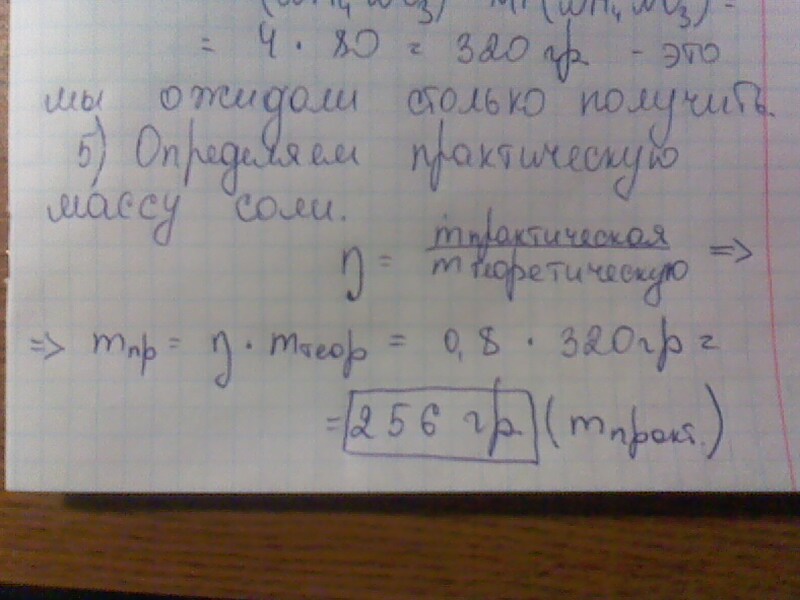 (NH₄NO₃) · Mr (NH₄NO₃) =
= 4 · 80 = 320 гр - это
мы ожидали столько получить.
5) Определяем практическую
массу соли.
η = mпрактическая / mтеоретическую =>
=> mпр = η · mтеор = 0,8 · 320 гр =
= 256 гр (mпракт.)